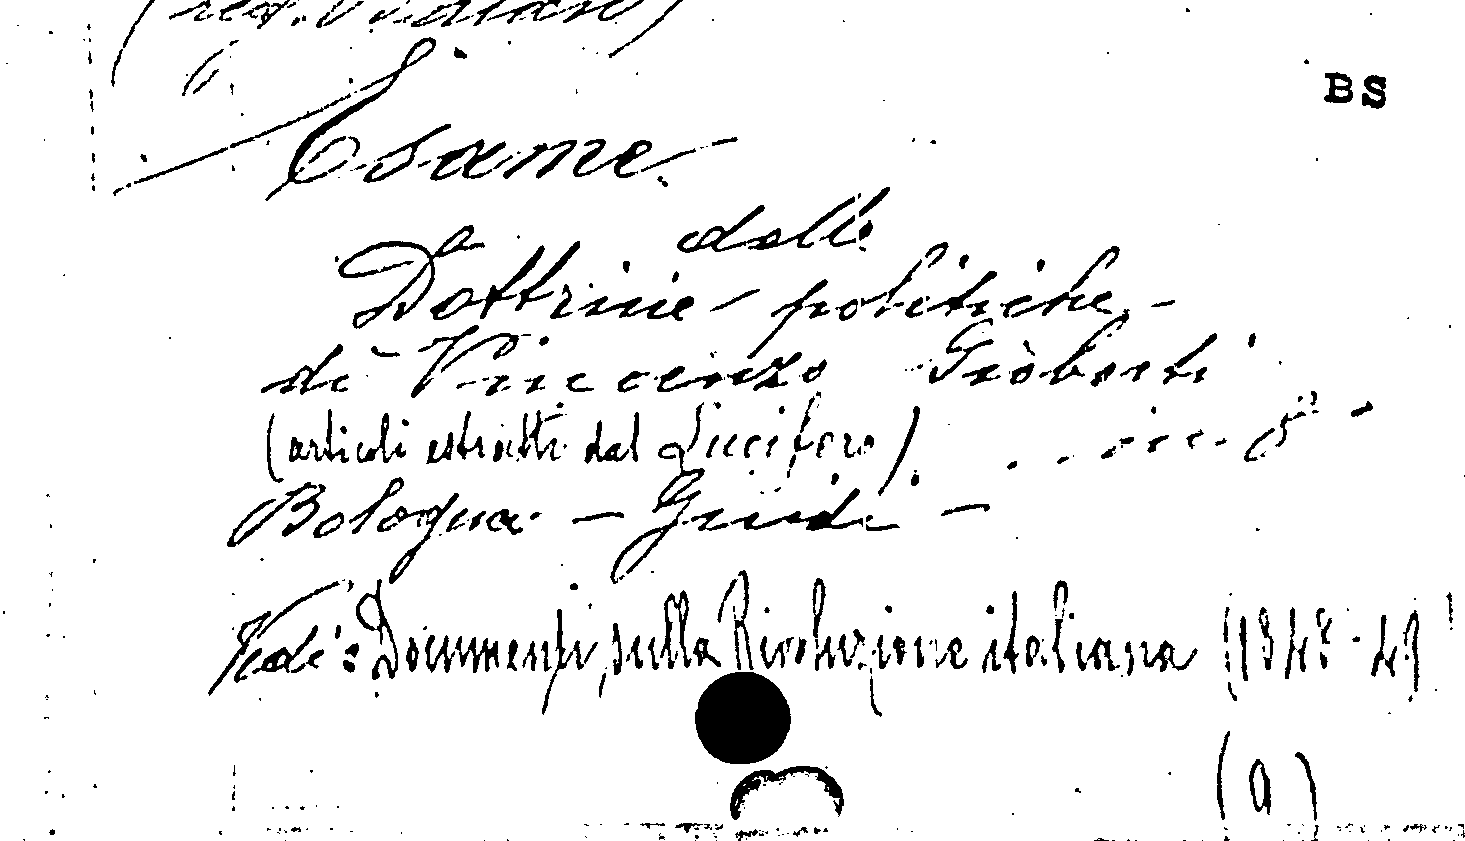 BS
Esame
delle
Dottrine politiche -
di Vincenzo Gioberti
(articoli estratti dal Lucifero) . . in 8°-
Bologna - Guidi -
Vedi: Documenti sulla Rivoluzione italiana (1848-49
(a)